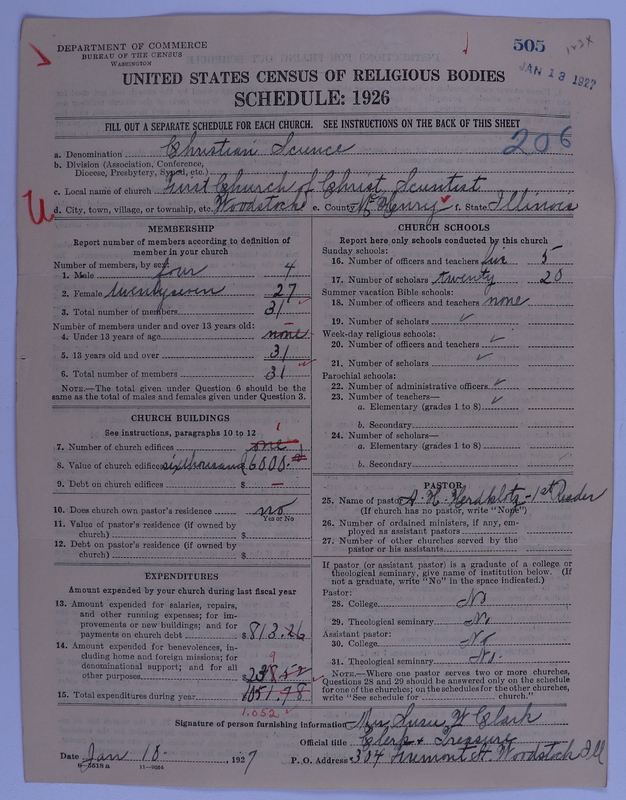 DEPARTMENT OF COMMERCE
BUREAU OF THE CENSUS
WASHINGTON
505
JAN 13 1927
UNITED STATES CENSUS OF RELIGIOUS BODIES
SCHEDULE: 1926
FILL OUT A SEPARATE SCHEDULE FOR EACH CHURCH. SEE INSTRUCTIONS ON THE BACK OF THIS SHEET
206
a. Denomination Christian Science
b. Division (Association, Conference, Diocese, Presbytery, Synod, etc.)
c. Local name of church First Church of Christ, Scientist
d. City, town, village, or township, etc. Woodstock e. County McHenry f. State Illinois
MEMBERSHIP
Report number of members according to definition of
member in your church
Number of members, by sex:
1. Male four 4
2. Female twenty seven 27
3. Total number of members 31
Number of members under and over 13 years old:
4. Under 13 years of age none
5. 13 years old and over 31
6. Total number of members 31
NOTE.—The total given under Question 6 should be the
same as the total of males and females given under Question 3.
CHURCH BUILDINGS
See instructions, paragraphs 10 to 12
1
7. Number of church edifices one
8. Value of church edifices six thousand $6000.
9. Debt on church edifices $ —
10. Does church own pastor's residence no
Yes or No
11. Value of pastor's residence (if owned by
church) $
12. Debt on pastor's residence (if owned by
church) $
EXPENDITURES
Amount expended by your church during last fiscal year
13. Amount expended for salaries, repairs,
and other running expenses; for im-
provements or new buildings; and for
payments on church debt $813.26
14. Amount expended for benevolences, in-
cluding home and foreign missions; for
denominational support; and for all
other purposes 238.52
9
15. Total expenditures during year 1051.78
1,052
CHURCH SCHOOLS
Report here only schools conducted by this church
Sunday schools:
16. Number of officers and teachers five 5
17. Number of scholars twenty 20
Summer vacation Bible schools:
18. Number of officers and teachers none
19. Number of scholars ✓
Week-day religious schools:
20. Number of officers and teachers ✓
21. Number of scholars ✓
Parochial schools:
22. Number of administrative officers ✓
23. Number of teachers— ✓
a. Elementary (grades 1 to 8)
b. Secondary
24. Number of scholars—
a. Elementary (grades 1 to 8)
b. Secondary ✓
PASTOR
25. Name of pastor - 1st Reader
(If church has no pastor, write "None")
26. Number of ordained ministers, if any, em-
ployed as assistant pastors
27. Number of other churches served by the
pastor or his assistants
If pastor (or assistant pastor) is a graduate of a college or
theological seminary, give name of institution below. (If
not a graduate, write "No" in the space indicated.)
Pastor:
28. College No
29. Theological seminary No
Assistant pastor:
30. College No
31. Theological seminary No
NOTE.—Where one pastor serves two or more churches,
Questions 28 and 29 should be answered only on the schedule
for one of the churches; on the schedules for the other churches,
write "See schedule for church."
Signature of person furnishing information Mrs Susie W Clark
Official title Clerk + Treasurer
Date Jan 10 - 1927 P. O. Address 304 Fremont St. Woodstock Ill
8-5518 a 11-9264